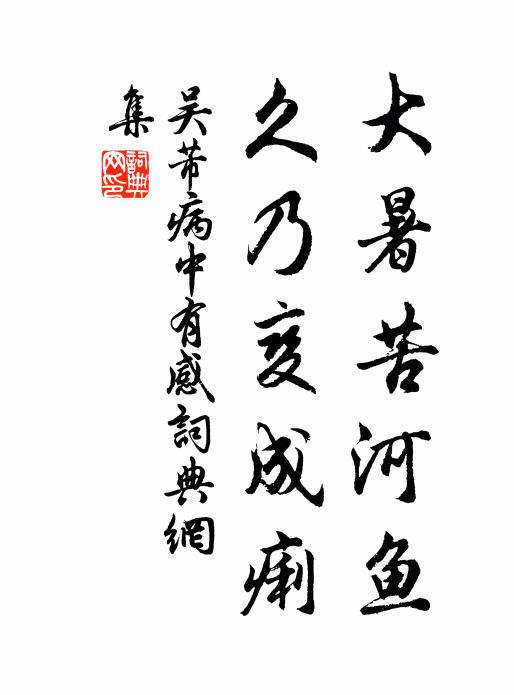 大暑苦河鱼
久乃变成痢
吴芾病中有感詞典網
集
詞典
网印